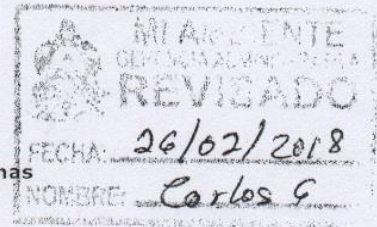 MI AMBIENTE
REVISADO
FECHA: 26/02/2018
nas
NOMBRE: Carlos G